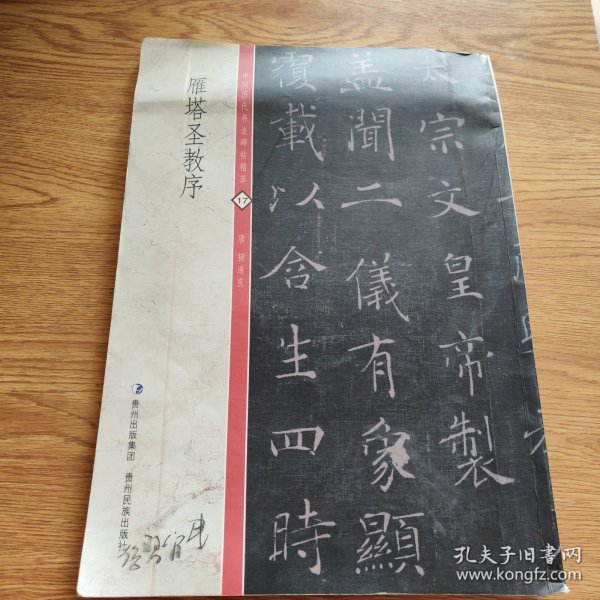 雁塔圣教序
中国历代书法碑帖精萃
17
唐 褚遂良
太宗文皇帝製
盖聞二儀有象顯
覆載以含生四時
贵州出版集团
贵州民族出版社
孔夫子旧书网
www.kongfz.com